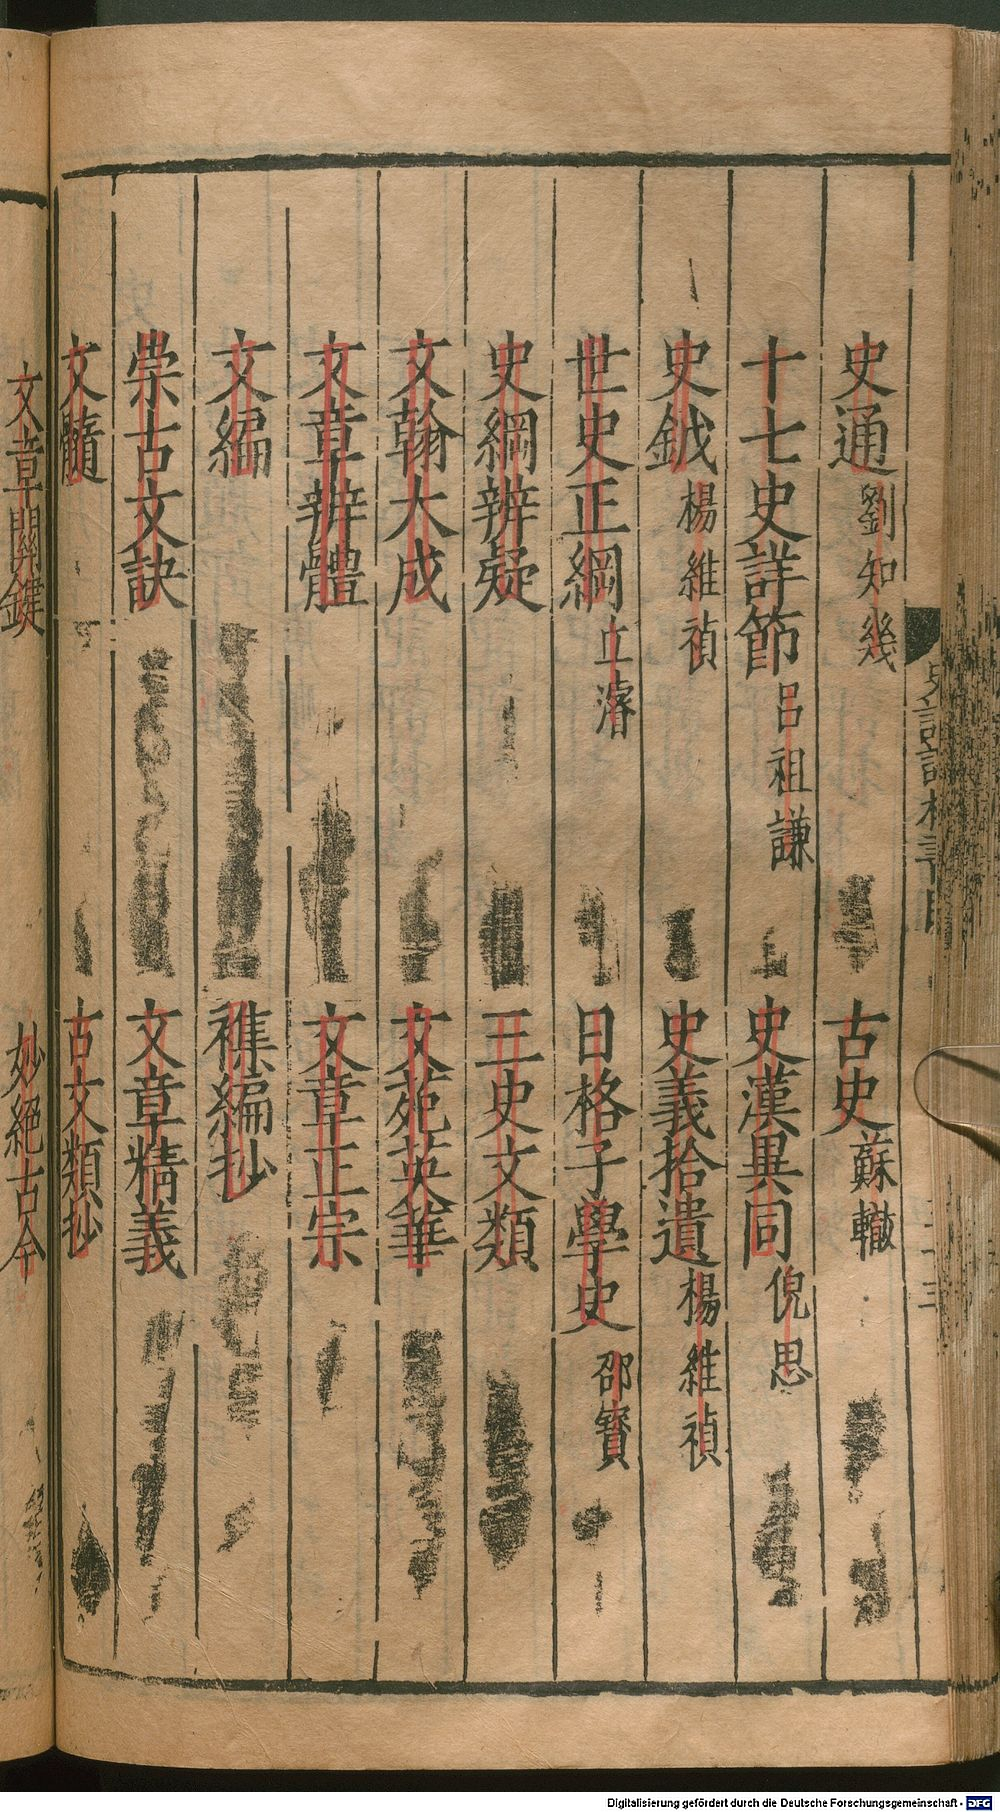 史通 劉知幾 古史 蘇轍
十七史詳節 呂祖謙 史漢異同 倪思
史鉞 楊維禎 史義拾遺 楊維禎
世史正綱 丘濬 日格子學史 邵寶
史綱辨疑 三史文類
文翰大成 文苑英華
文章辨體 文章正宗
文編 稚編抄
崇古文訣 文章精義
文髓 古文類抄
文章關鍵 妙絕古今
Digitalisierung gefördert durch die Deutsche Forschungsgemeinschaft - DFG